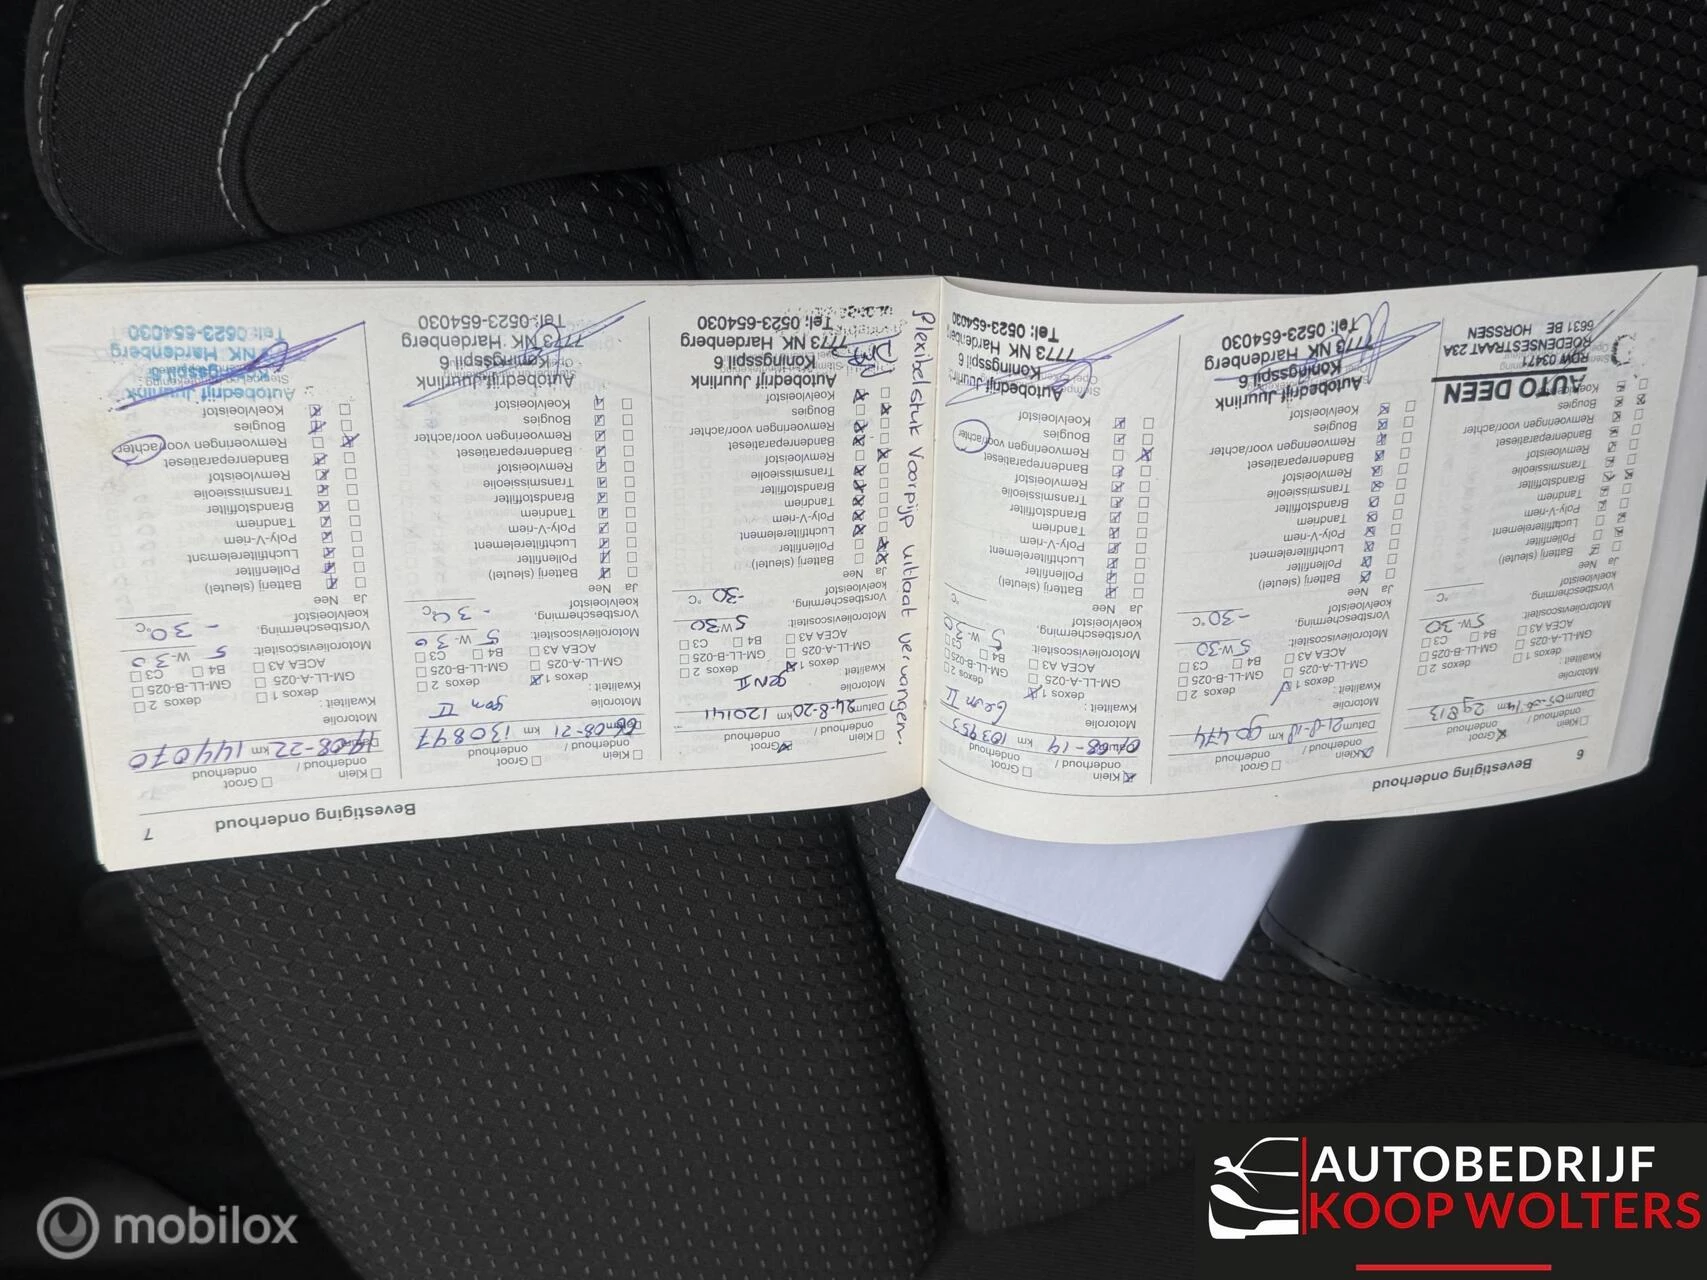 6
Bevestiging onderhoud
Klein onderhoud /
Groot onderhoud
Datum 05-06-14 km 29813
Motorolie
Kwaliteit:
dexos 1
dexos 2
GM-LL-A-025
GM-LL-B-025
ACEA A3
B4
C3
Motorolieviscositeit:
5W-30
Vorstbescherming,
koelvloeistof
°C
Ja Nee
Batterij (sleutel)
Pollenfilter
Luchtfilterelement
Poly-V-riem
Tandriem
Brandstoffilter
Transmissieolie
Remvloeistof
Bandenreparatieset
Remvoeringen voor/achter
Bougies
Koelvloeistof
AUTO DEEN
RDW 03471
ROEDENSESTRAAT 23A
6631 BE HORSSEN
Klein onderhoud /
Groot onderhoud
Datum 21-8-18 km 90474
Motorolie
Kwaliteit:
dexos 1
dexos 2
GM-LL-A-025
GM-LL-B-025
ACEA A3
B4
C3
Motorolieviscositeit:
5W-30
Vorstbescherming,
koelvloeistof
-30 °C
Ja Nee
Batterij (sleutel)
Pollenfilter
Luchtfilterelement
Poly-V-riem
Tandriem
Brandstoffilter
Transmissieolie
Remvloeistof
Bandenreparatieset
Remvoeringen voor/achter
Bougies
Koelvloeistof
Autobedrijf Juurlink
Koningsspil 6
7773 NK Hardenberg
Tel: 0523-654030
Klein onderhoud /
Groot onderhoud
08-19 km 103953
Motorolie
Kwaliteit:
dexos 1
dexos 2
Gen II
GM-LL-A-025
GM-LL-B-025
ACEA A3
B4
C3
Motorolieviscositeit:
5 W-30
Vorstbescherming,
koelvloeistof
°C
Ja Nee
Batterij (sleutel)
Pollenfilter
Luchtfilterelement
Poly-V-riem
Tandriem
Brandstoffilter
Transmissieolie
Remvloeistof
Bandenreparatieset
Remvoeringen voor/achter
Bougies
Koelvloeistof
Autobedrijf Juurlink
Koningsspil 6
7773 NK Hardenberg
Tel: 0523-654030
7
Bevestiging onderhoud
Klein onderhoud /
Groot onderhoud
Datum 24-8-20 km 120141
Motorolie
Kwaliteit:
dexos 1
gen II
dexos 2
GM-LL-A-025
GM-LL-B-025
ACEA A3
B4
C3
Motorolieviscositeit:
5W30
Vorstbescherming,
koelvloeistof
-30 °C
Ja Nee
Batterij (sleutel)
Pollenfilter
Luchtfilterelement
Poly-V-riem
Tandriem
Brandstoffilter
Transmissieolie
Remvloeistof
Bandenreparatieset
Remvoeringen voor/achter
Bougies
Koelvloeistof
Autobedrijf Juurlink
Koningsspil 6
7773 NK Hardenberg
Tel: 0523-654030
Flexibelstuk voorpijp uitlaat vervangen.
Klein onderhoud /
Groot onderhoud
08-21 km 130847
Motorolie
Kwaliteit:
gen II
dexos 1
dexos 2
GM-LL-A-025
GM-LL-B-025
ACEA A3
B4
C3
Motorolieviscositeit:
5 W-30
Vorstbescherming,
koelvloeistof
°C
Ja Nee
Batterij (sleutel)
Pollenfilter
Luchtfilterelement
Poly-V-riem
Tandriem
Brandstoffilter
Transmissieolie
Remvloeistof
Bandenreparatieset
Remvoeringen voor/achter
Bougies
Koelvloeistof
Autobedrijf Juurlink
Koningsspil 6
7773 NK Hardenberg
Tel: 0523-654030
Klein onderhoud /
Groot onderhoud
08-22 km 144070
Motorolie
Kwaliteit:
dexos 1
dexos 2
GM-LL-A-025
GM-LL-B-025
ACEA A3
B4
C3
Motorolieviscositeit:
5 W-30
Vorstbescherming,
koelvloeistof
-30 °C
Ja Nee
Batterij (sleutel)
Pollenfilter
Luchtfilterelement
Poly-V-riem
Tandriem
Brandstoffilter
Transmissieolie
Remvloeistof
Bandenreparatieset
Remvoeringen voor/achter
Bougies
Koelvloeistof
Autobedrijf Juurlink
Koningsspil 6
NK Hardenberg
Tel: 0523-654030
mobilox
AUTOBEDRIJF
KOOP WOLTERS